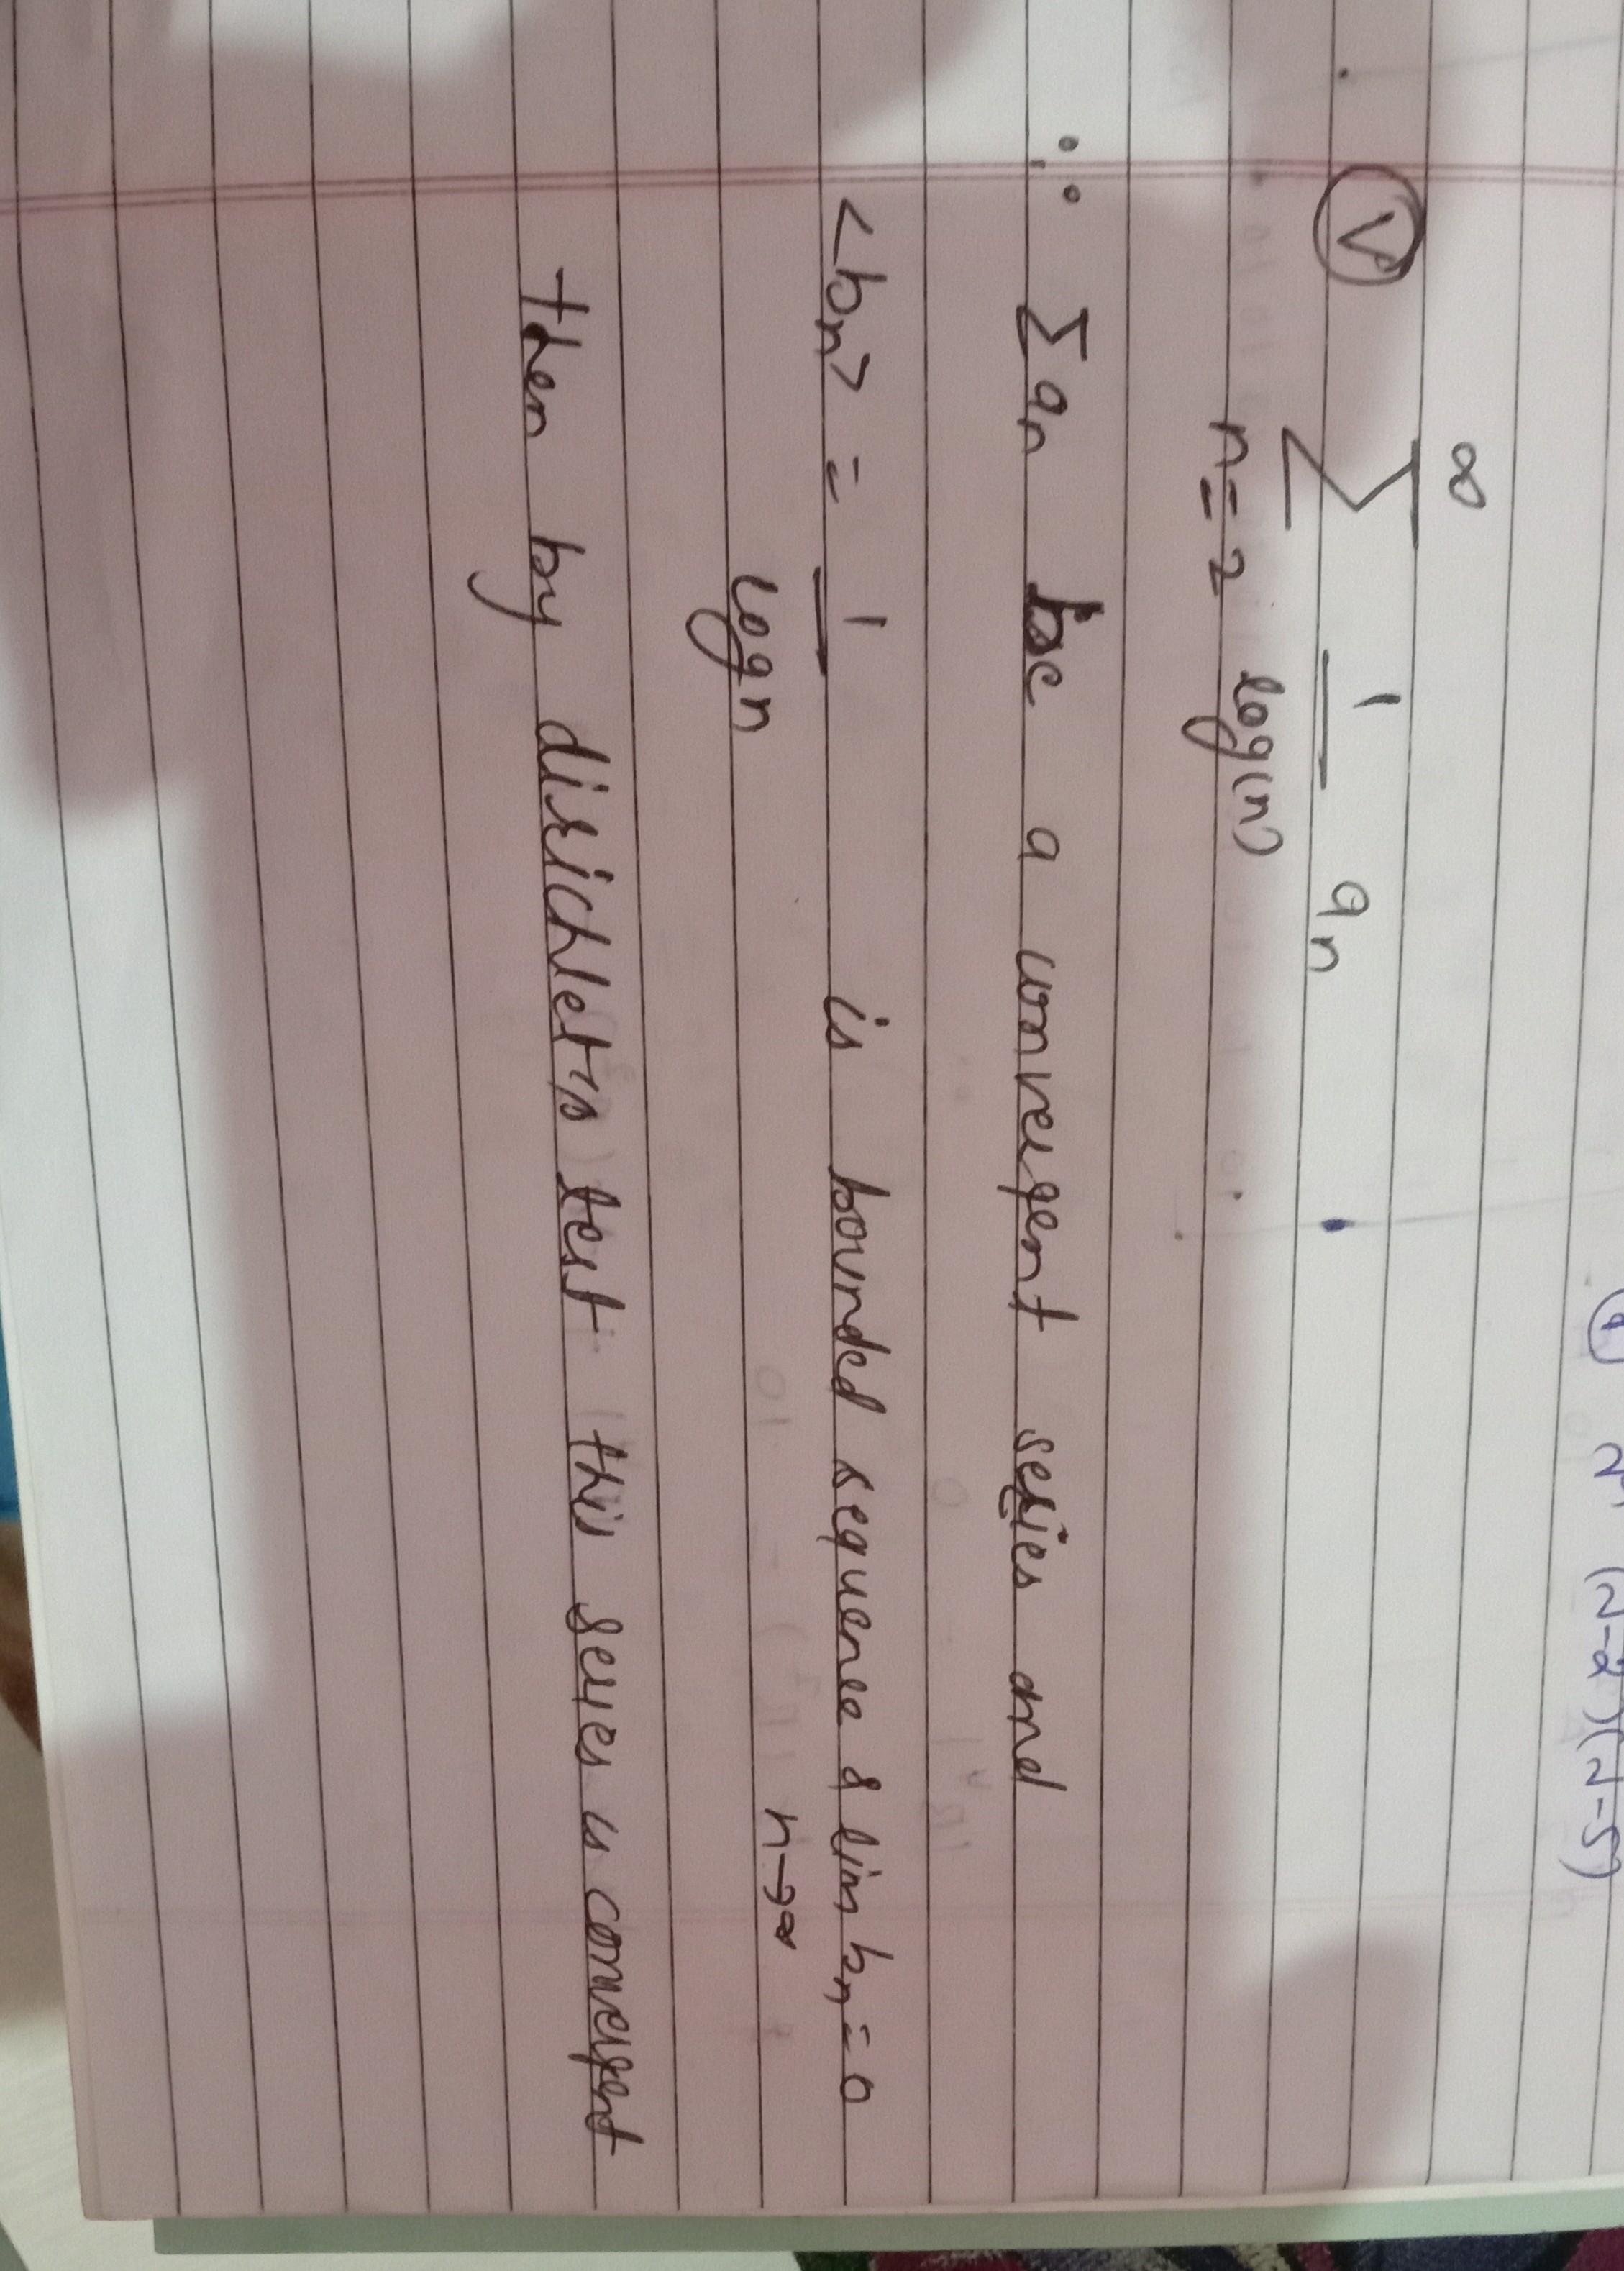 ④ 2' (2-2)(2-5)
Ⓥ ∞ ∑ n=2 1/log(n) an
∵ ∑an be a convergent series and
<bn> = 1/logn is bounded sequence & lim n→∞ bn = 0
then by dirichlet's test this series is convergent